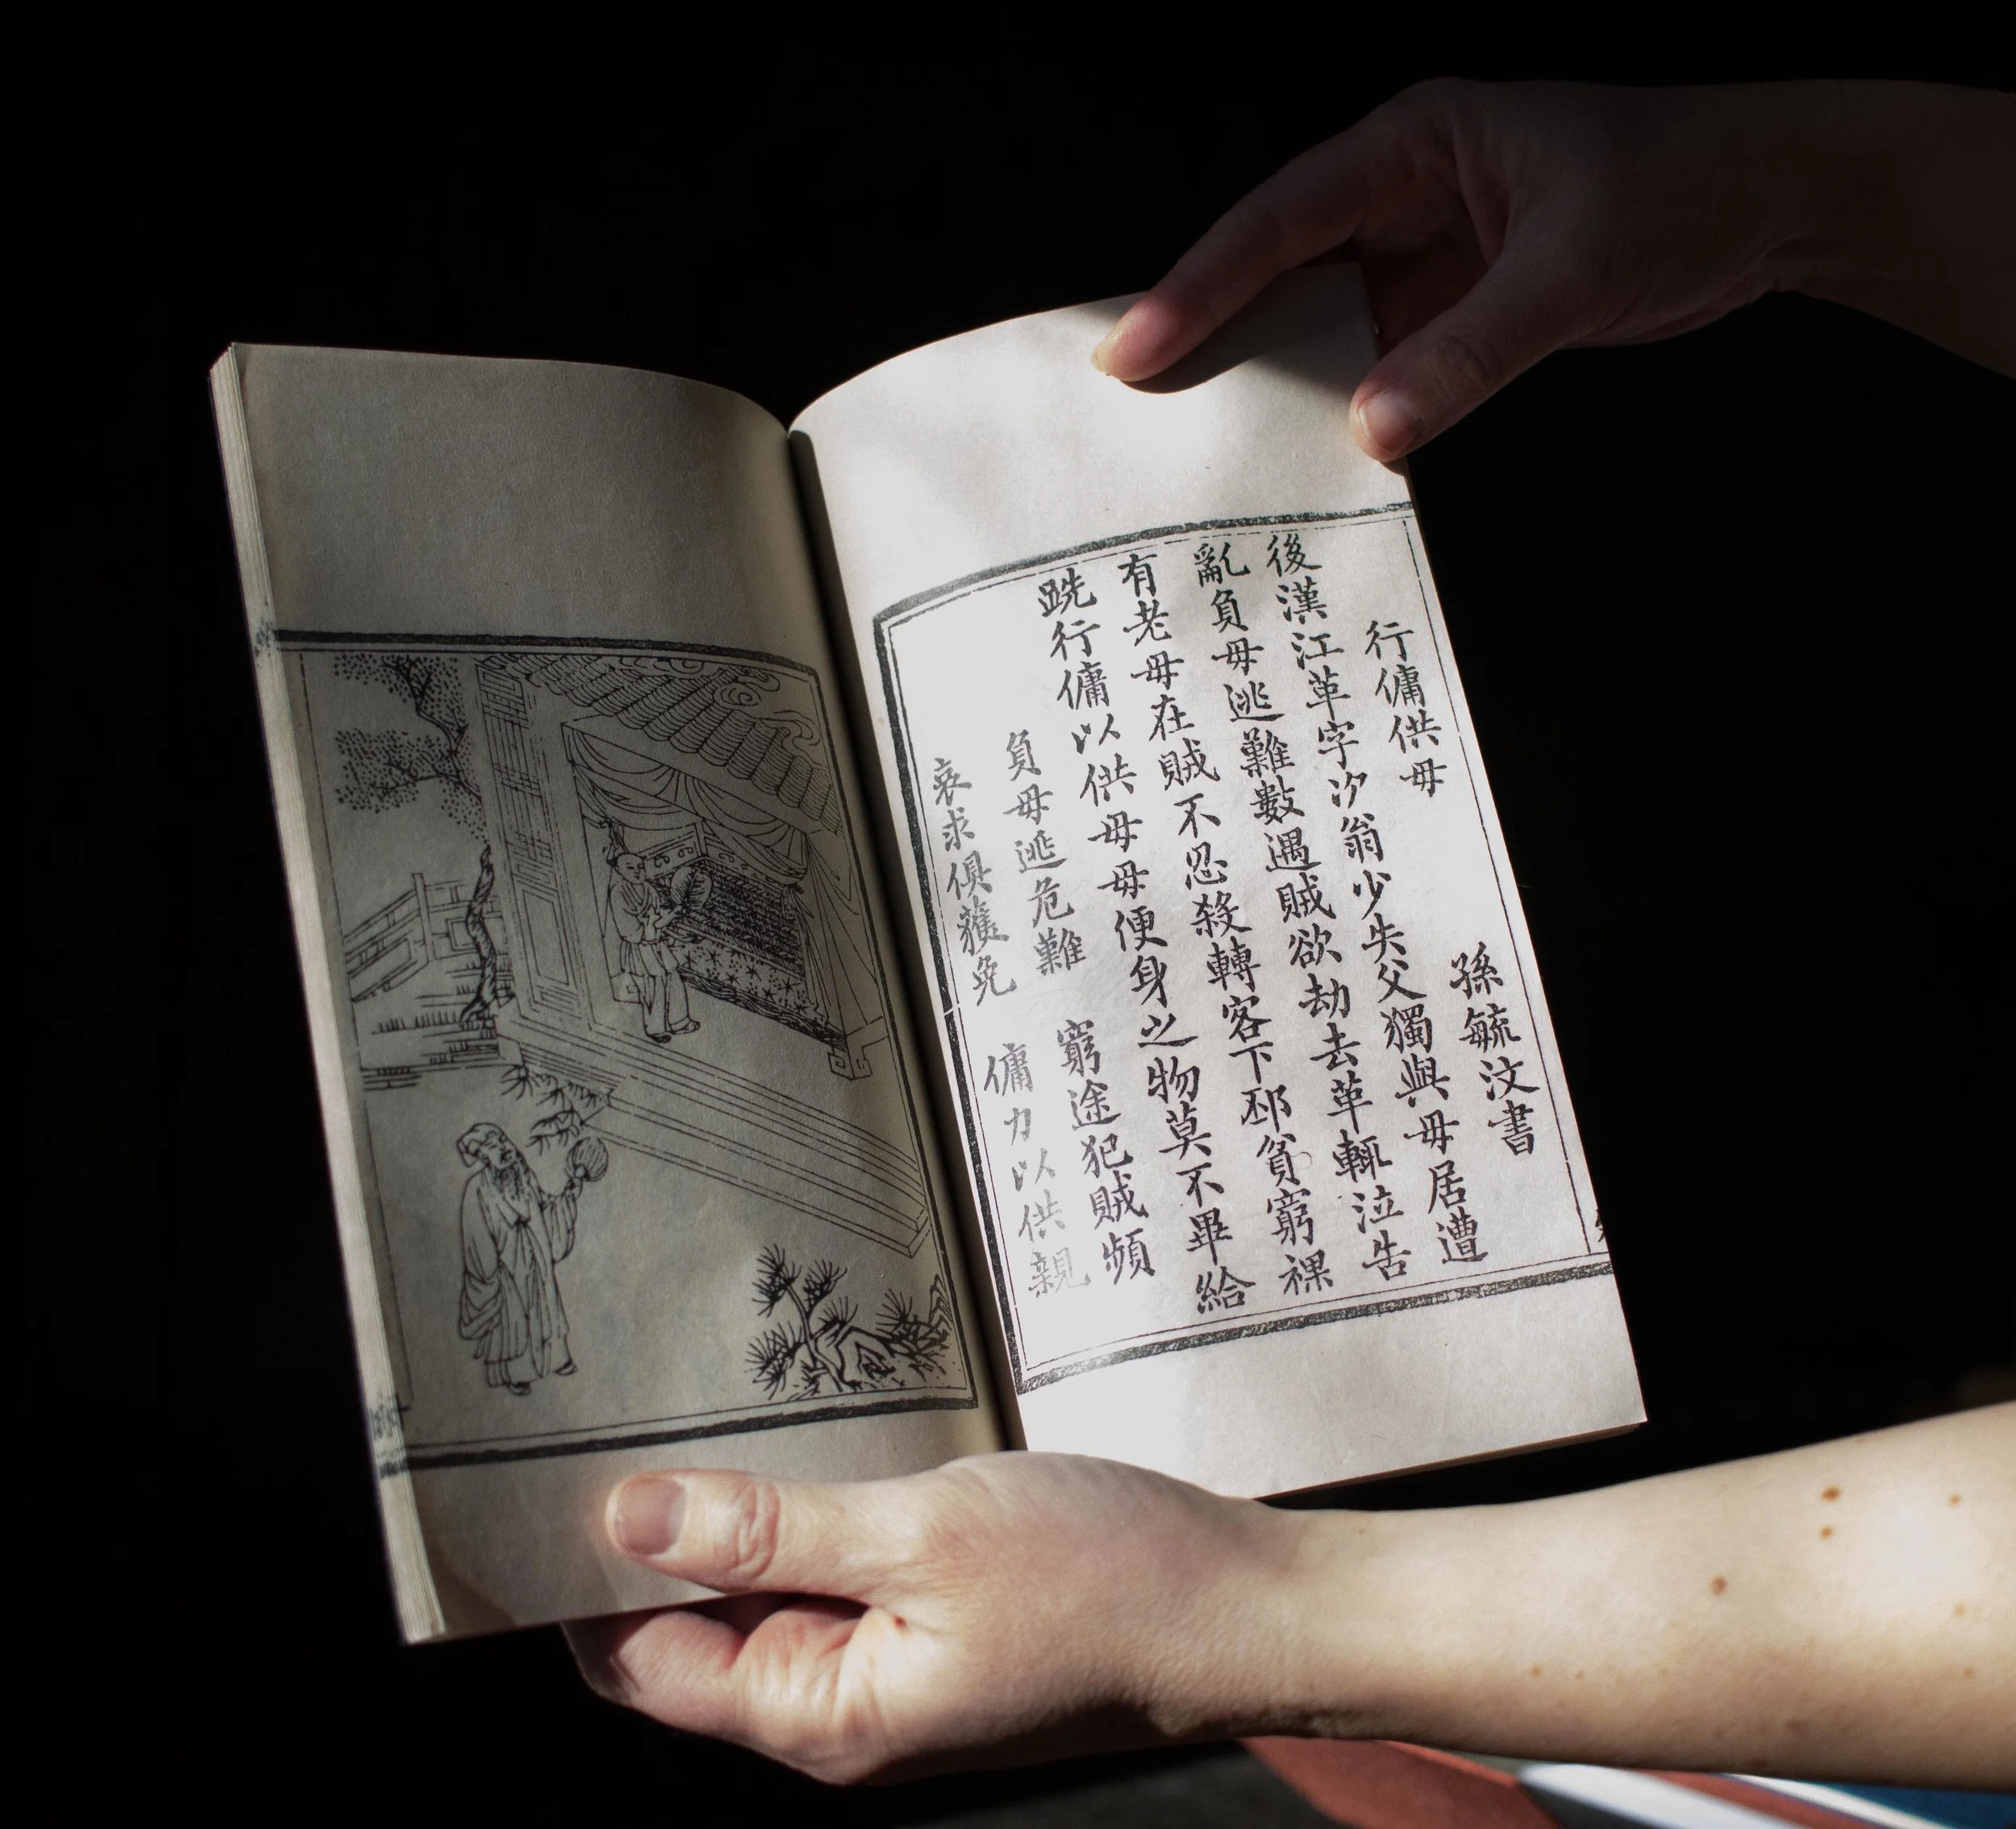 行傭供母 孫毓汶書
後漢江革字汐翁少失父獨與母居遭
亂負母逃難數遇賊欲劫去革輒泣告
有老母在賊不忍殺轉客下邳貧窮裸
跣行傭以供母母便身之物莫不畢給
負母逃危難 窮途犯賊頻
哀求俱獲免 傭力以供親